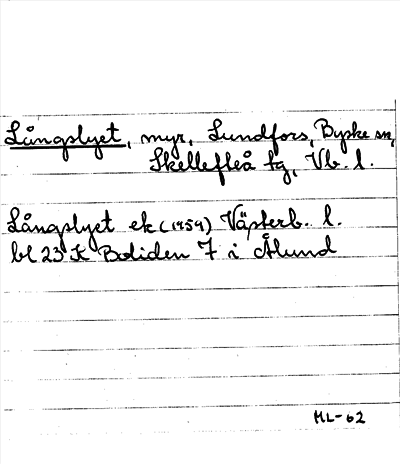 Långslyet, myr, Lundfors, Byske sn,
Skellefteå tg, Vb. l.
Långslyet ek (1959) Västerb. l.
bl 23 K Boliden 7 i Ålund
HL-62